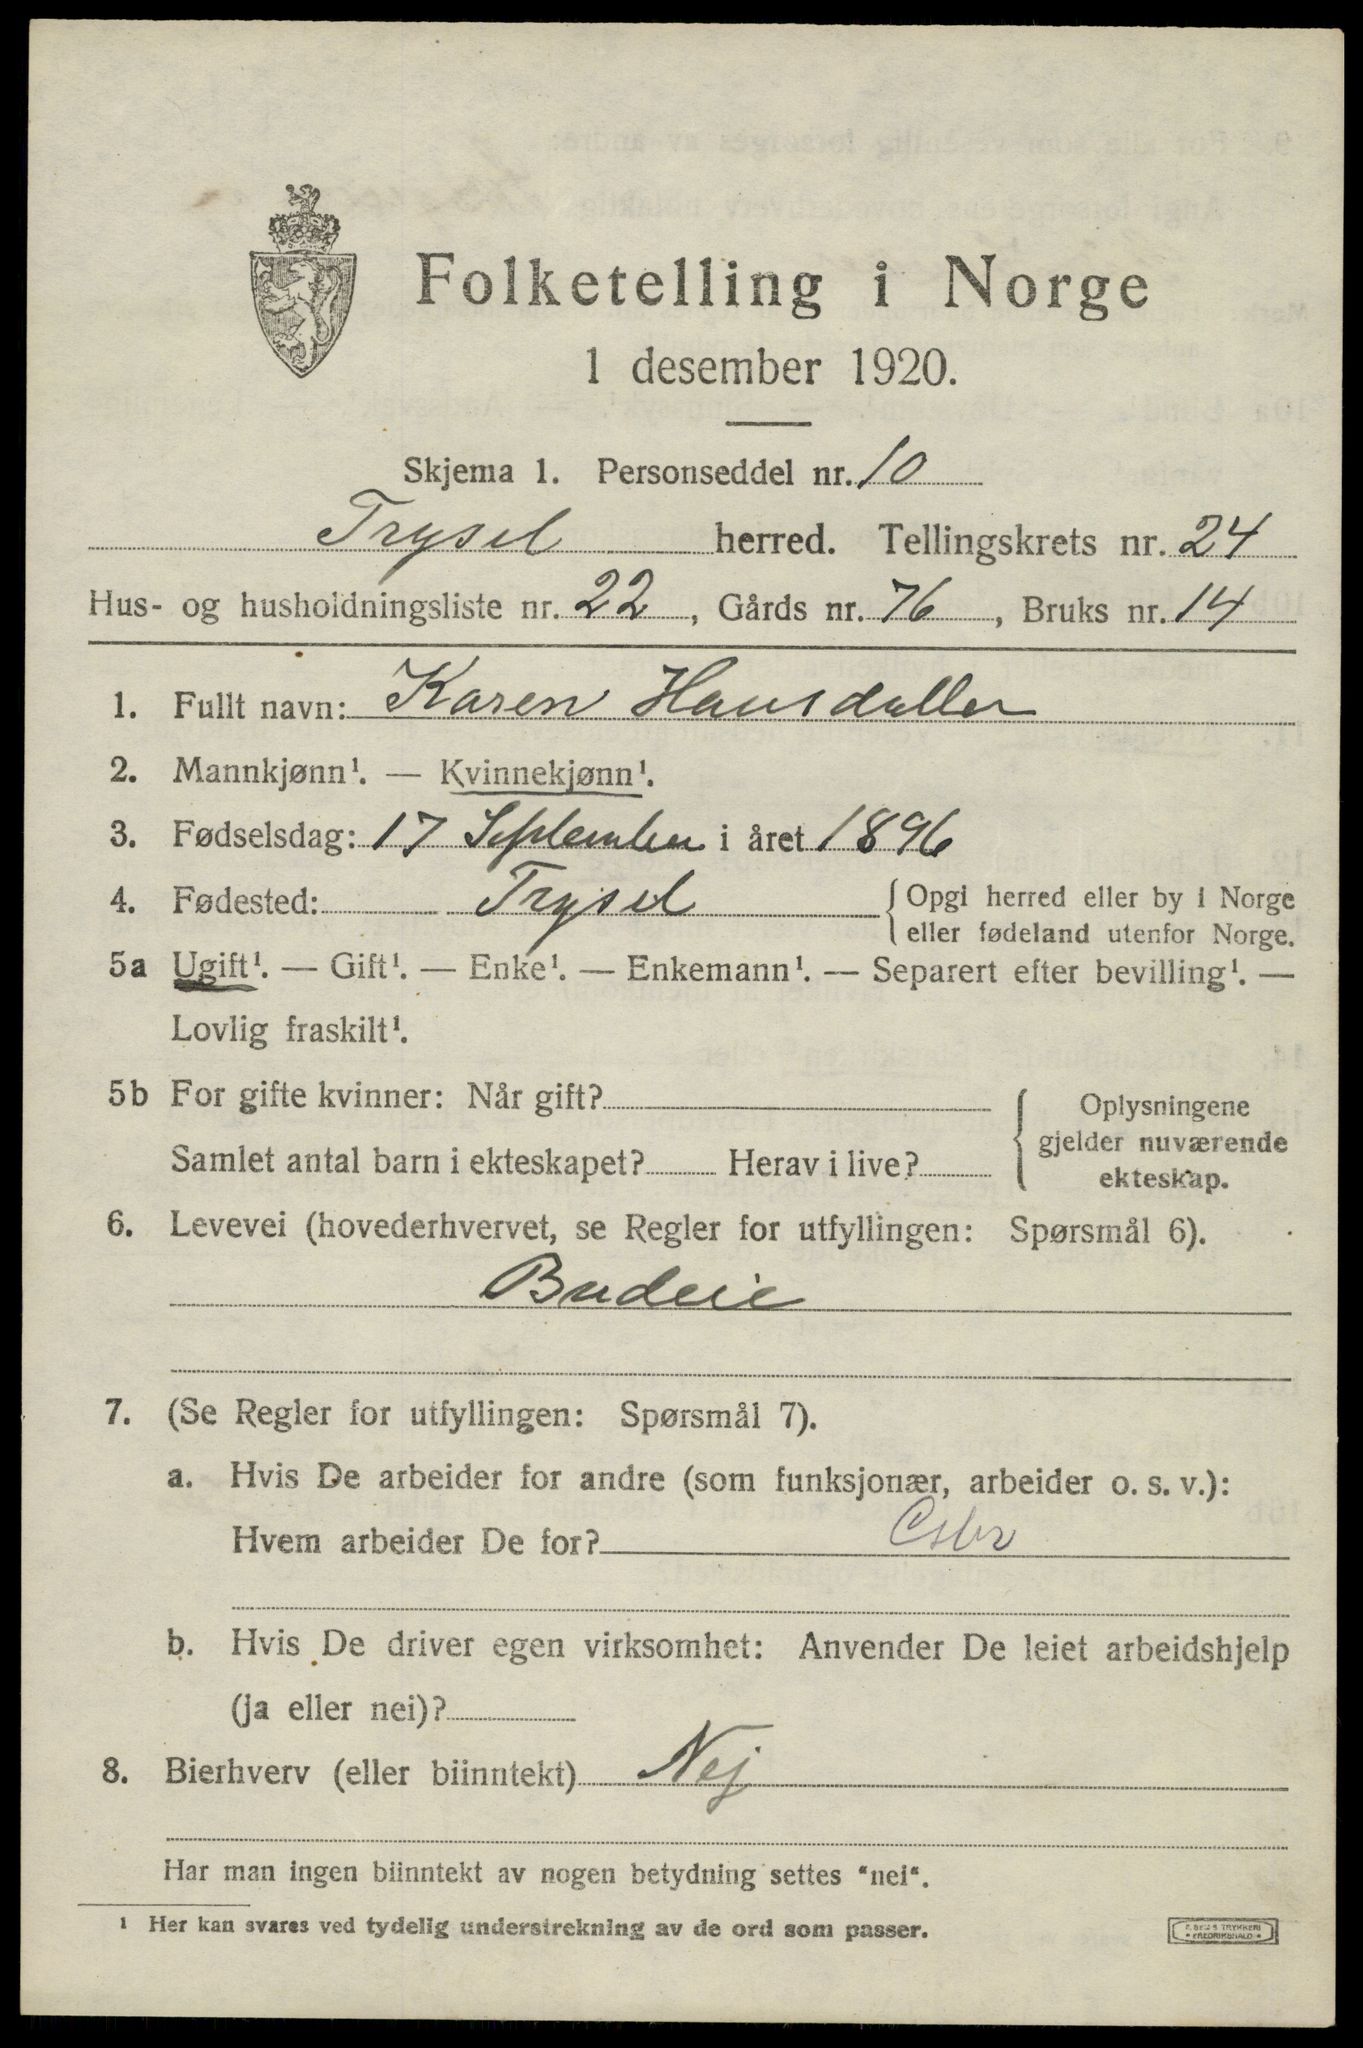 Folketelling i Norge
1 desember 1920.
Skjema 1. Personseddel nr. 10
Trysel herred. Tellingskrets nr. 24
Hus- og husholdningsliste nr. 22, Gårds nr. 76, Bruks nr. 14
1. Fullt navn: Karen Hansdatter
2. Mannkjønn¹. — Kvinnekjønn¹.
3. Fødselsdag: 17 September i året 1896
4. Fødested: Trysel { Opgi herred eller by i Norge
eller fødeland utenfor Norge.
5a Ugift¹. — Gift¹. — Enke¹. — Enkemann¹. — Separert efter bevilling¹. —
Lovlig fraskilt¹.
5b For gifte kvinner: Når gift? { Oplysningene
gjelder nuværende
ekteskap.
Samlet antal barn i ekteskapet? Herav i live?
6. Levevei (hovederhvervet, se Regler for utfyllingen: Spørsmål 6).
Budeie
7. (Se Regler for utfyllingen: Spørsmål 7).
a. Hvis De arbeider for andre (som funksjonær, arbeider o. s. v.):
Hvem arbeider De for?
b. Hvis De driver egen virksomhet: Anvender De leiet arbeidshjelp
(ja eller nei)?
8. Bierhverv (eller biinntekt) Nej
Har man ingen biinntekt av nogen betydning settes "nei".
¹ Her kan svares ved tydelig understrekning av de ord som passer.